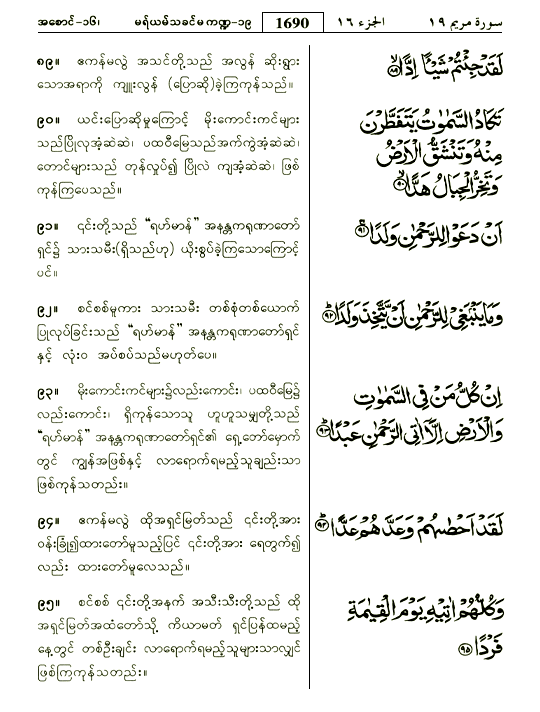 အစောင်-၁၆၊ မရ်ယမ်သခင်မ ကဏ္ဍ-၁၉ 1690 الجزء ١٦ سورة مريم ١٩
၈၉။ ဧကန်မလွဲ အသင်တို့သည် အလွန် ဆိုးရွား
သောအရာကို ကျူးလွန် (ပြောဆို)ခဲ့ကြကုန်သည်။
لَقَدْ جِئْتُمْ شَيْـًٔا اِدًّا ۙ﴿۸۹﴾
၉၀။ ယင်းပြောဆိုမှုကြောင့် မိုးကောင်းကင်များ
သည်ပြိုလုအံ့ဆဲဆဲ၊ ပထဝီမြေသည်အက်ကွဲအံ့ဆဲဆဲ၊
တောင်များသည် တုန်လှုပ်၍ ပြိုလဲ ကျအံ့ဆဲဆဲ၊ ဖြစ်
ကုန်ကြပေသည်။
تَكَادُ السَّمٰوٰتُ يَتَفَطَّرْنَ
مِنْهُ وَتَنْشَقُّ الْاَرْضُ
وَتَخِرُّ الْجِبَالُ هَدًّا ۙ﴿۹۰﴾
၉၁။ ၎င်းတို့သည် “ရဟ်မာန်” အနန္တကရုဏာတော်
ရှင်၌ သားသမီး(ရှိသည်ဟု) ယိုးစွပ်ခဲ့ကြသောကြောင့်
ပင်။
اَنْ دَعَوْا لِلرَّحْمٰنِ وَلَدًا ۚ﴿۹۱﴾
၉၂။ စင်စစ်မူကား သားသမီး တစ်စုံတစ်ယောက်
ပြုလုပ်ခြင်းသည် “ရဟ်မာန်” အနန္တကရုဏာတော်ရှင်
နှင့် လုံးဝ အပ်စပ်သည်မဟုတ်ပေ။
وَمَا يَنْۢبَغِيْ لِلرَّحْمٰنِ اَنْ يَّتَّخِذَ وَلَدًا ؕ﴿۹۲﴾
၉၃။ မိုးကောင်းကင်များ၌လည်းကောင်း၊ ပထဝီမြေ၌
လည်းကောင်း၊ ရှိကုန်သောသူ ဟူဟူသမျှတို့သည်
“ရဟ်မာန်” အနန္တကရုဏာတော်ရှင်၏ ရှေ့တော်မှောက်
တွင် ကျွန်အဖြစ်နှင့် လာရောက်ရမည့်သူချည်းသာ
ဖြစ်ကုန်သတည်း။
اِنْ كُلُّ مَنْ فِي السَّمٰوٰتِ
وَالْاَرْضِ اِلَّاۤ اٰتِي الرَّحْمٰنِ عَبْدًا ؕ﴿۹۳﴾
၉၄။ ဧကန်မလွဲ ထိုအရှင်မြတ်သည် ၎င်းတို့အား
ဝန်းခြုံ၍ထားတော်မူသည့်ပြင် ၎င်းတို့အား ရေတွက်၍
လည်း ထားတော်မူလေသည်။
لَقَدْ اَحْصٰىهُمْ وَعَدَّهُمْ عَدًّا ؕ﴿۹۴﴾
၉၅။ စင်စစ် ၎င်းတို့အနက် အသီးသီးတို့သည် ထို
အရှင်မြတ်အထံတော်သို့ ကိယာမတ် ရှင်ပြန်ထမည့်
နေ့တွင် တစ်ဦးချင်း လာရောက်ရမည့်သူများသာလျှင်
ဖြစ်ကြကုန်သတည်း။
وَكُلُّهُمْ اٰتِيْهِ يَوْمَ الْقِيٰمَةِ
فَرْدًا ﴿۹۵﴾